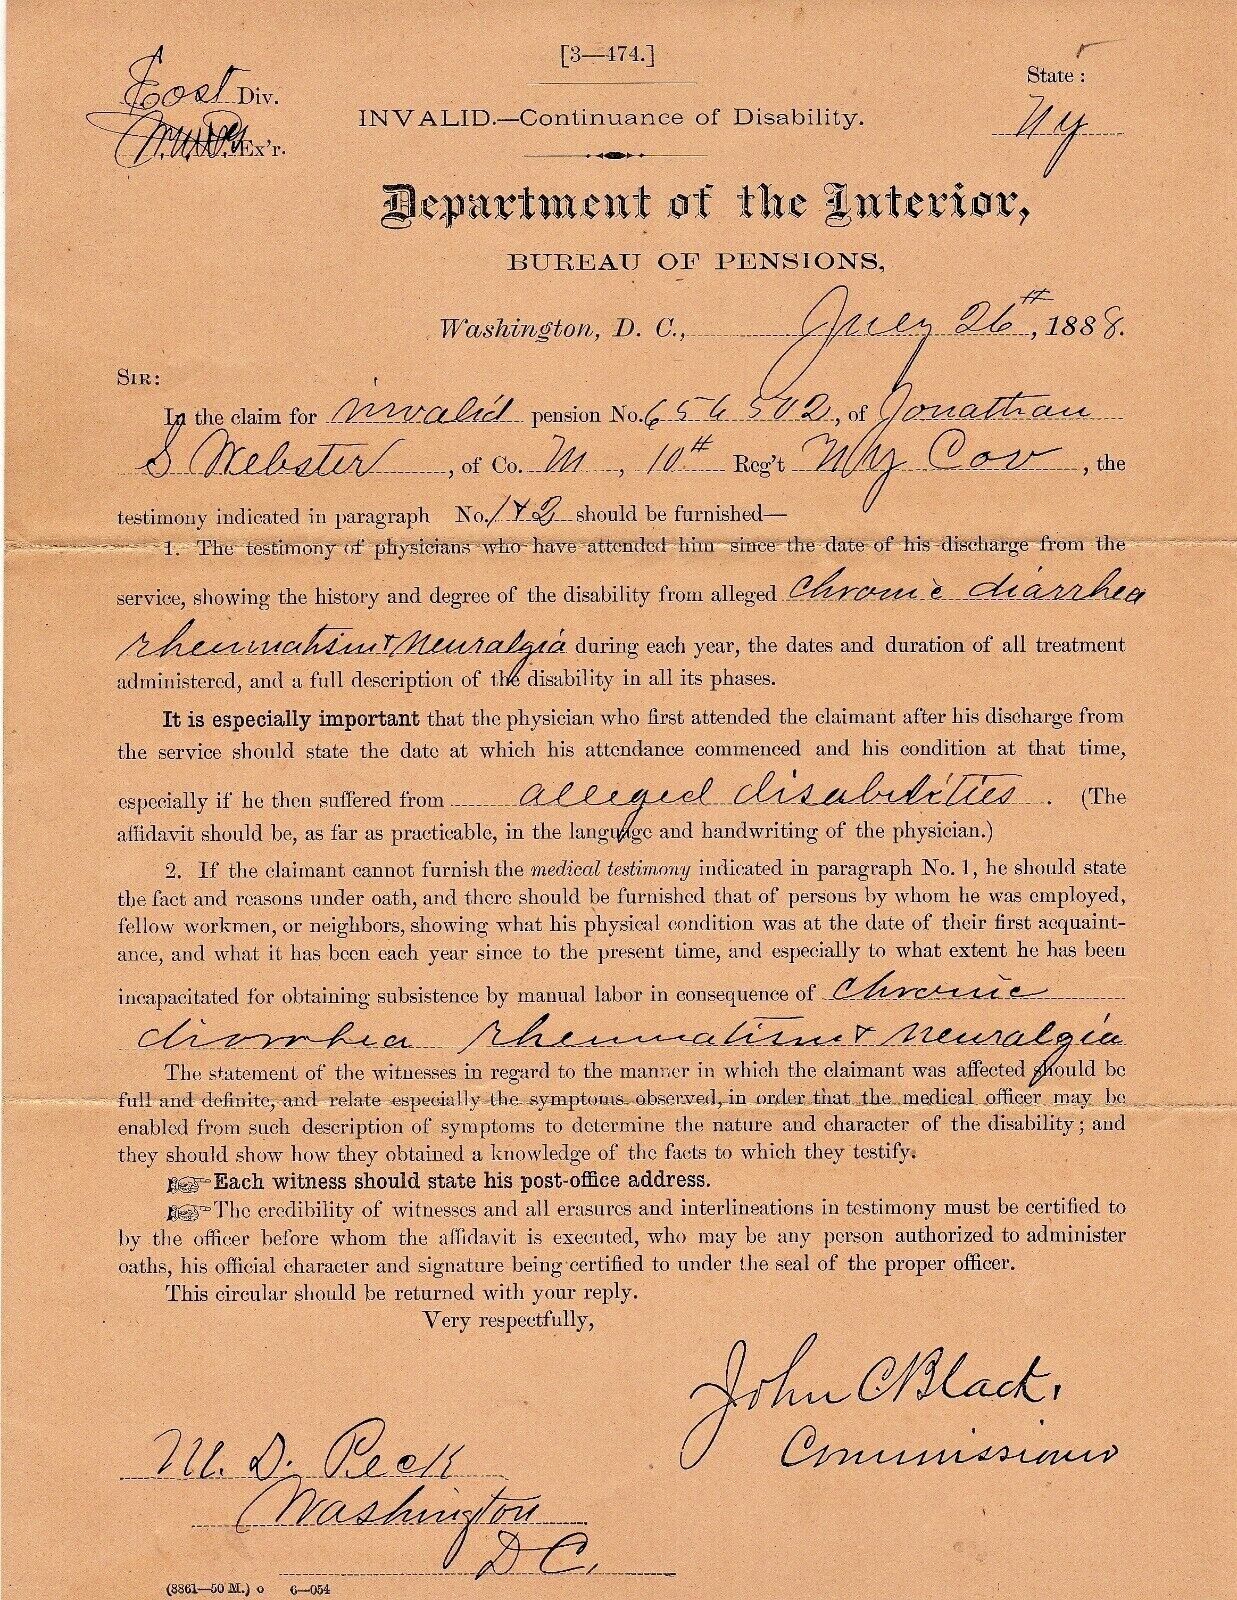 [3—474.]
East Div.
Ex'r.
State:
NY
INVALID.—Continuance of Disability.
Department of the Interior,
BUREAU OF PENSIONS,
Washington, D. C., July 26th, 1888.
SIR:
In the claim for invalid pension No. 656502, of Jonathan
S Webster, of Co. M, 10th Reg't NY Cav, the
testimony indicated in paragraph No. 1 & 2 should be furnished—
1. The testimony of physicians who have attended him since the date of his discharge from the
service, showing the history and degree of the disability from alleged chronic diarrhea
rheumatism & Neuralgia during each year, the dates and duration of all treatment
administered, and a full description of the disability in all its phases.
It is especially important that the physician who first attended the claimant after his discharge from
the service should state the date at which his attendance commenced and his condition at that time,
especially if he then suffered from alleged disabilities. (The
affidavit should be, as far as practicable, in the language and handwriting of the physician.)
2. If the claimant cannot furnish the medical testimony indicated in paragraph No. 1, he should state
the fact and reasons under oath, and there should be furnished that of persons by whom he was employed,
fellow workmen, or neighbors, showing what his physical condition was at the date of their first acquaint-
ance, and what it has been each year since to the present time, and especially to what extent he has been
incapacitated for obtaining subsistence by manual labor in consequence of chronic
diarrhea rheumatism & Neuralgia
The statement of the witnesses in regard to the manner in which the claimant was affected should be
full and definite, and relate especially the symptoms observed, in order that the medical officer may be
enabled from such description of symptoms to determine the nature and character of the disability; and
they should show how they obtained a knowledge of the facts to which they testify.
☞Each witness should state his post-office address.
☞The credibility of witnesses and all erasures and interlineations in testimony must be certified to
by the officer before whom the affidavit is executed, who may be any person authorized to administer
oaths, his official character and signature being certified to under the seal of the proper officer.
This circular should be returned with your reply.
Very respectfully,
John C Black,
Commissioner
M. D. Peck
Washington
DC.
(8861—50 M.) o 6—054